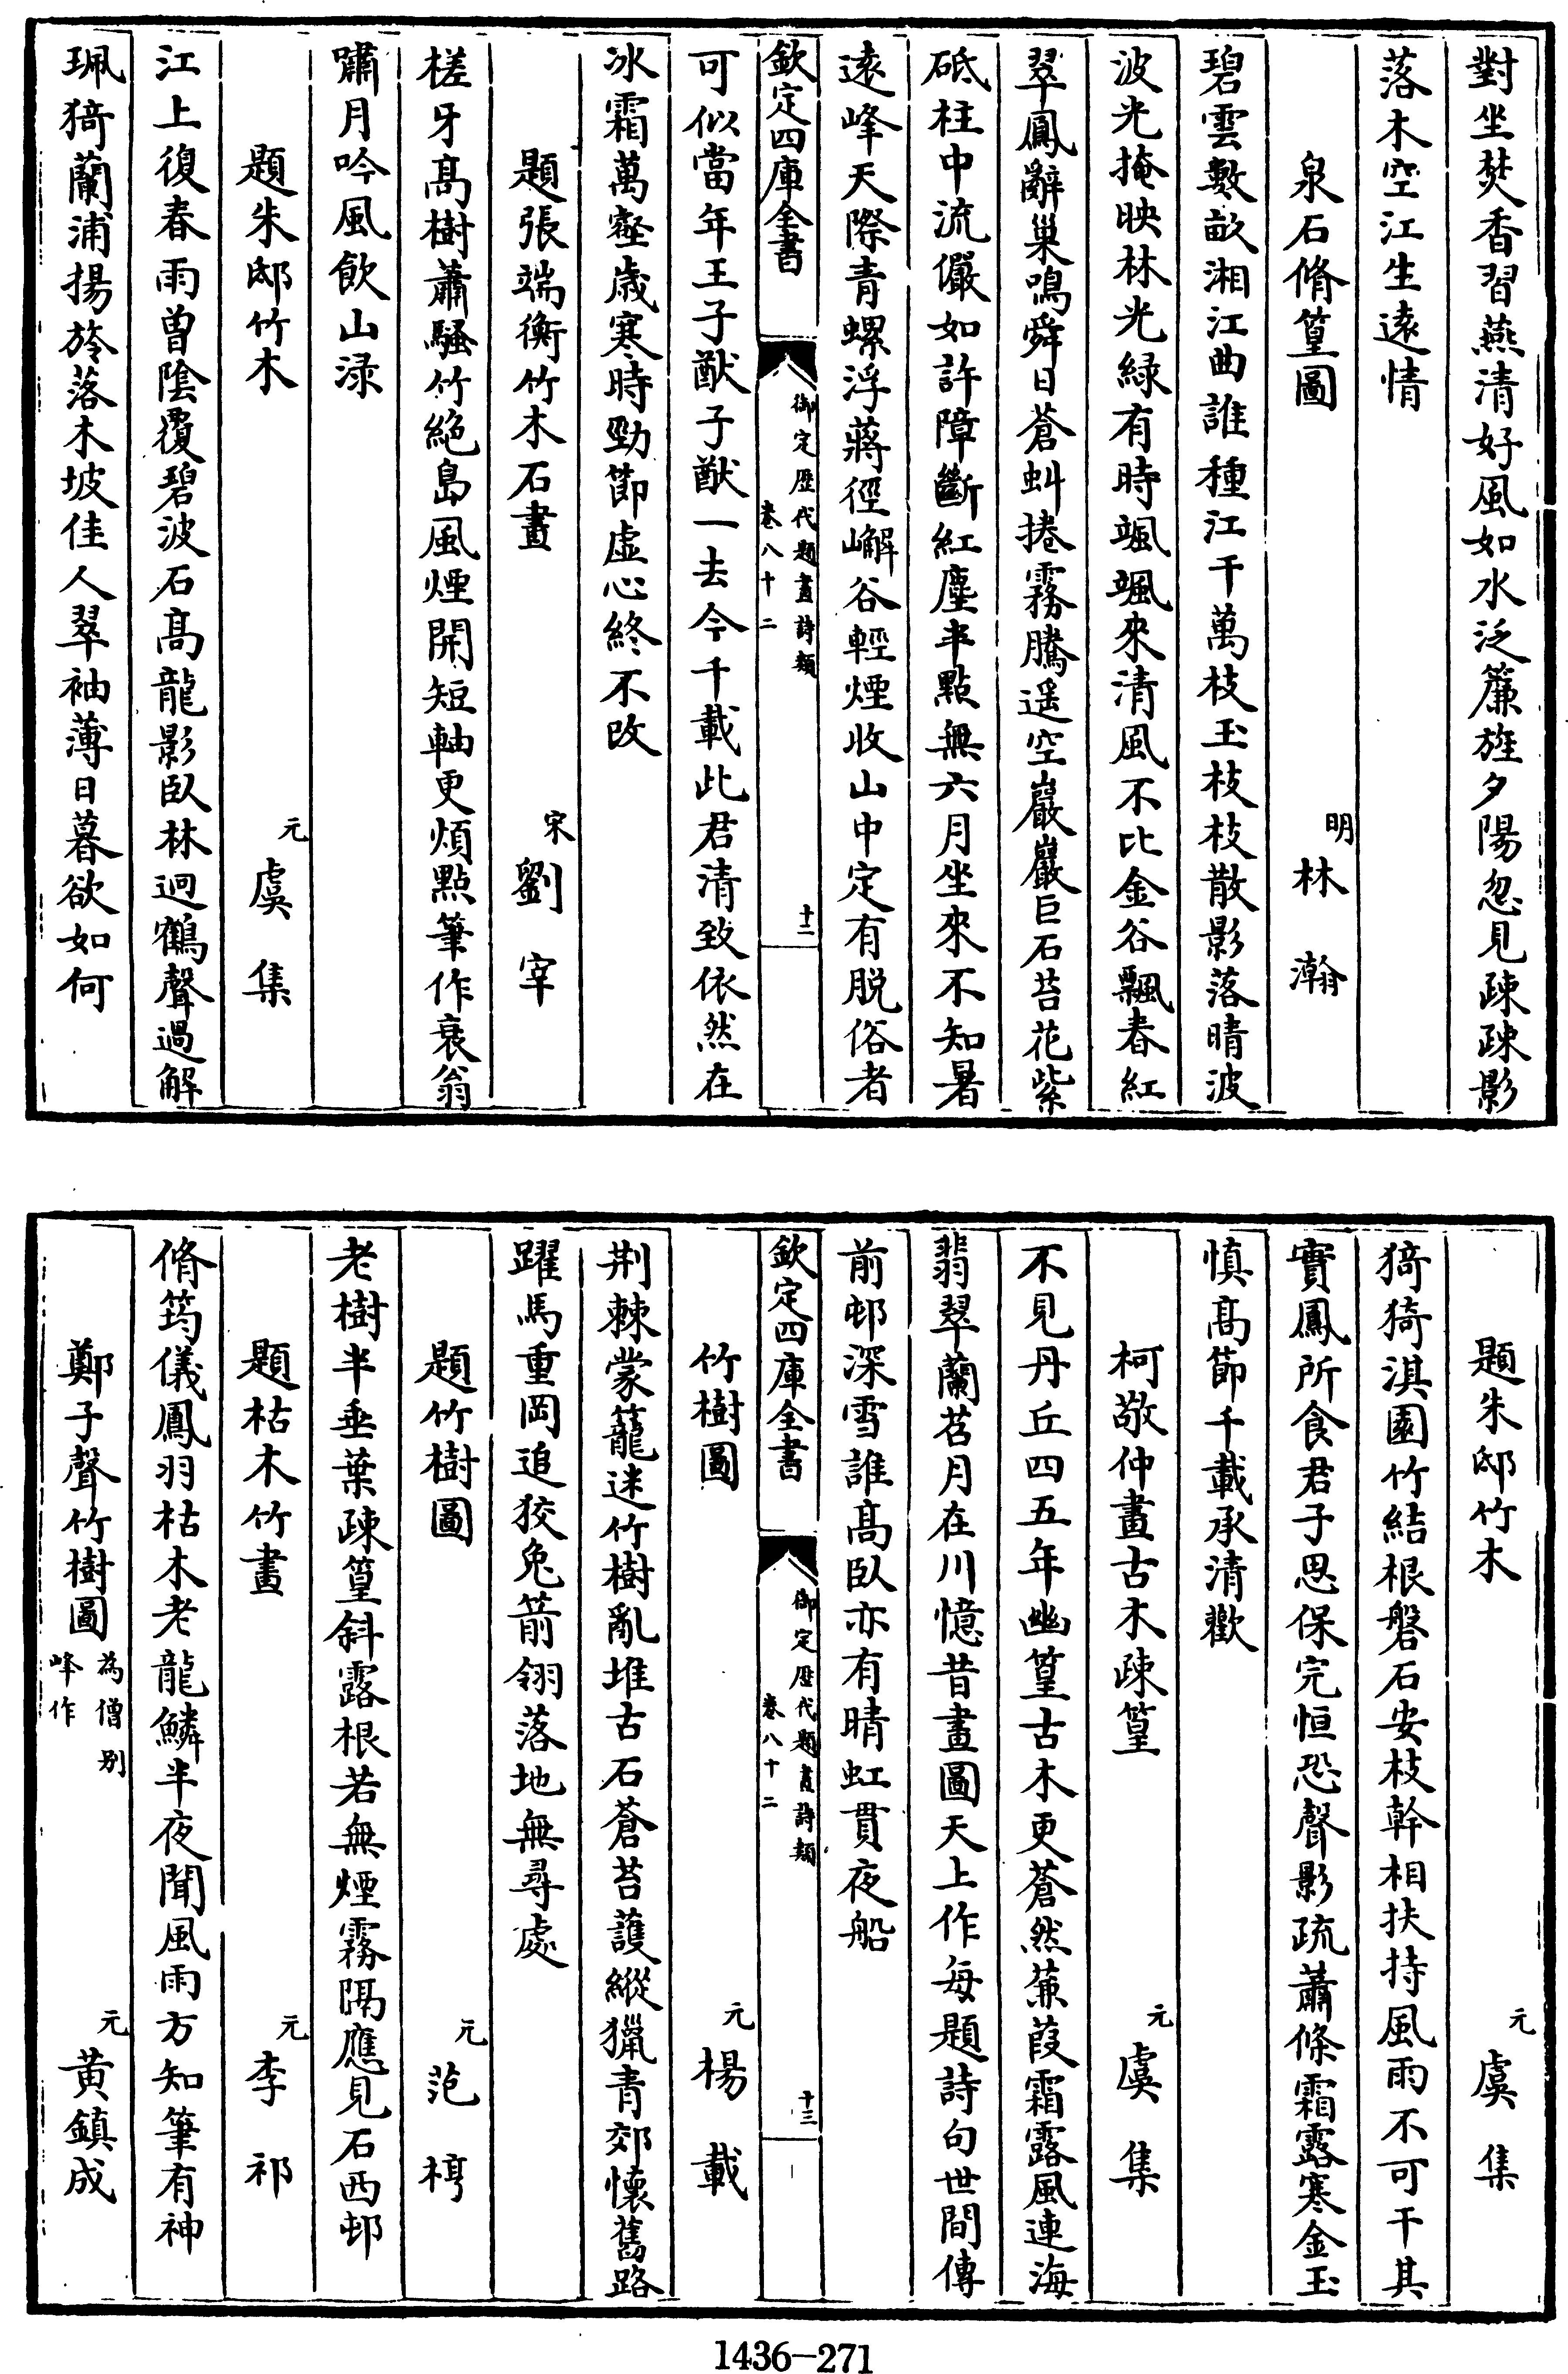 對坐焚香習燕清好風如水泛簾旌夕陽忽見疎疎影
落木空江生遠情
泉石脩篁圖 明 林瀚
碧雲數畝湘江曲誰種江干萬枝玉枝枝散影落晴波
波光掩映林光綠有時颯颯來清風不比金谷飄春紅
翠鳳辭巢鳴舜日蒼虯捲霧騰遥空巖巖巨石苔花紫
砥柱中流儼如許障斷紅塵半點無六月坐來不知暑
遠峰天際青螺浮蔣徑嶰谷輕煙收山中定有脱俗者
欽定四庫全書 御定歷代題畫詩類 卷八十二 十二
可似當年王子猷子猷一去今千載此君清致依然在
冰霜萬壑歲寒時勁節虛心終不改
題張端衡竹木石畫 宋 劉宰
槎牙髙樹蕭騷竹絶島風煙開短軸更煩點筆作衰翁
嘯月吟風飲山渌
題朱邸竹木 元 虞集
江上復春雨曽陰覆碧波石髙龍影臥林迥鶴聲過解
珮猗蘭浦揚旍落木坡佳人翠袖薄日暮欲如何
題朱邸竹木 元 虞集
猗猗淇園竹結根磐石安枝幹相扶持風雨不可干其
實鳳所食君子思保完恒恐聲影疏蕭條霜露寒金玉
慎髙節千載承清歡
柯敬仲畫古木疎篁 元 虞集
不見丹丘四五年幽篁古木更蒼然蒹葭霜露風連海
翡翠蘭苕月在川憶昔畫圖天上作每題詩句世間傳
前邨深雪誰髙臥亦有晴虹貫夜船
欽定四庫全書 御定歷代題畫詩類 卷八十二 十三
竹樹圖 元 楊載
荆棘蒙籠迷竹樹亂堆古石蒼苔護縱獵青郊懷舊路
躍馬重岡追狡兔箭翎落地無尋處
題竹樹圖 元 范梈
老樹半垂葉疎篁斜露根若無煙霧隔應見石西邨
題枯木竹畫 元 李祁
脩筠儀鳳羽枯木老龍鱗半夜聞風雨方知筆有神
鄭子聲竹樹圖 為僧别峰作 元 黄鎮成
1436-271